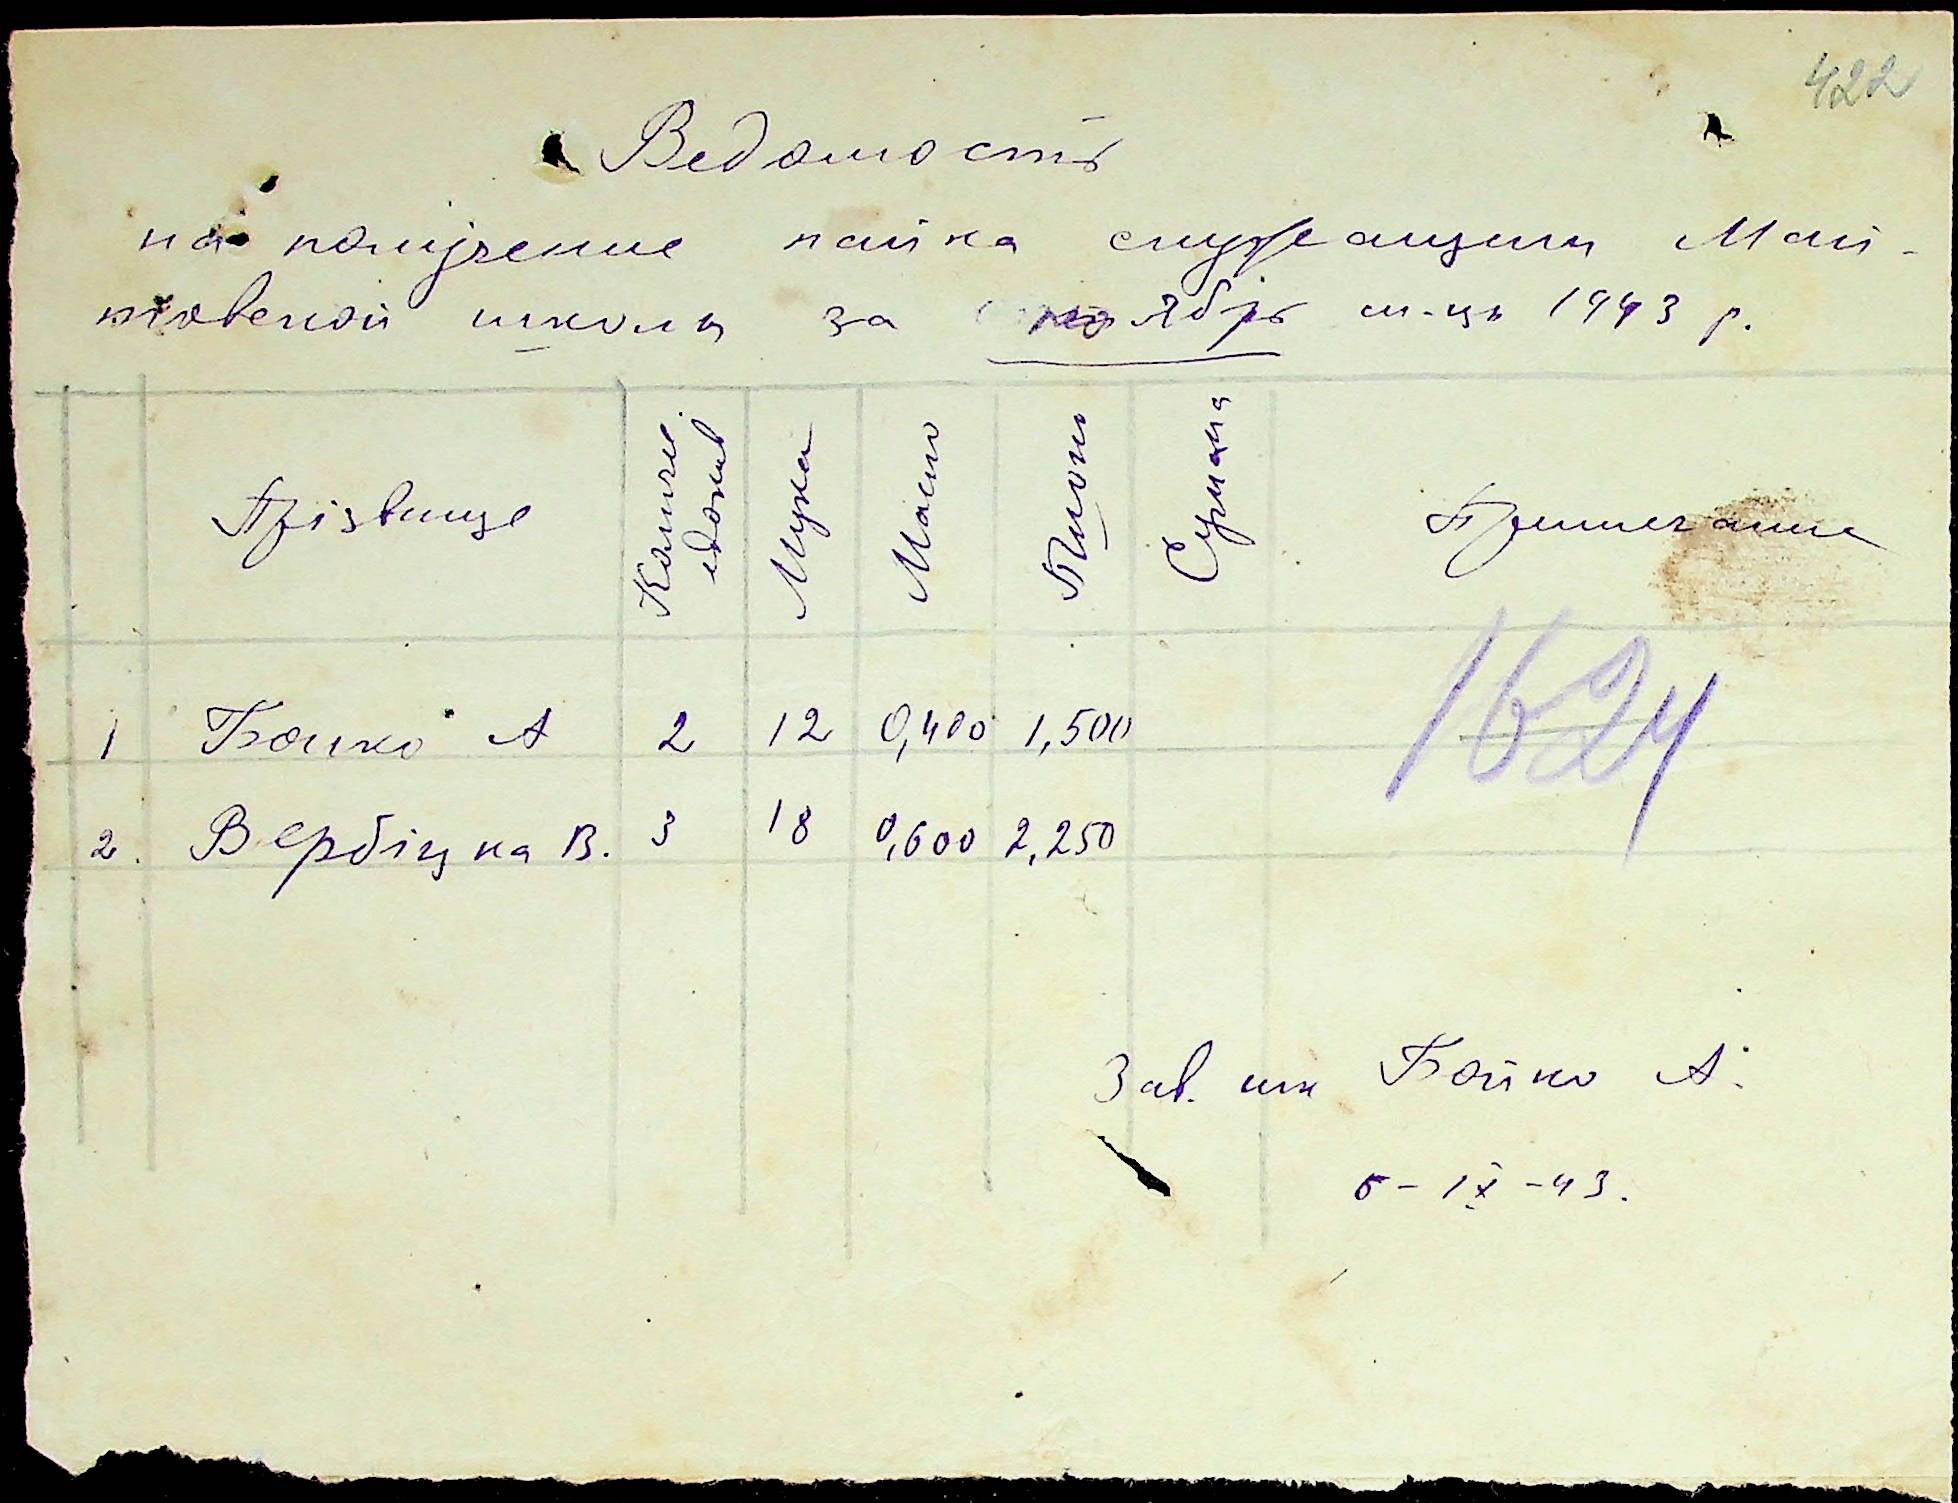 422
Ведомость
на получение пайка служащими Май-
ковской школы за ноябрь м-ць 1943 р.
Прізвище
Количе.
едоків
Мука
Масло
Пшоно
Сумма
Примечание
1 Бойко А 2 12 0,400 1,500
1624
2. Вербіцка В. 3 18 0,600 2,250
Зав. шк Бойко А.
5-IX-43.